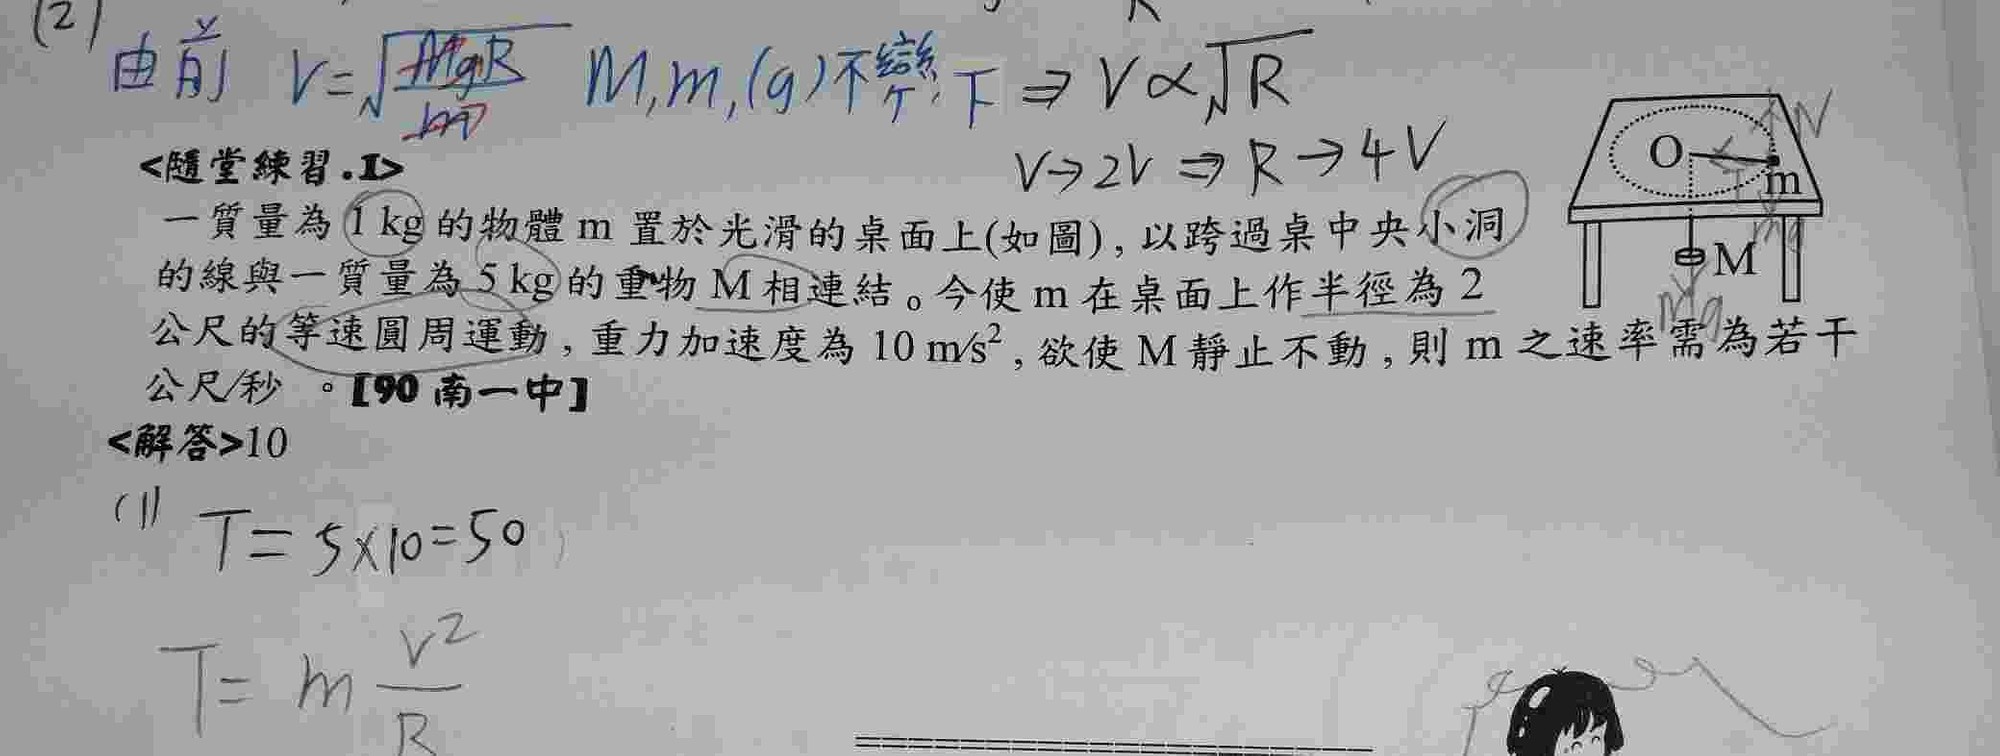 (2)
由前 V=√MgR/m M,m,(g)不變下 ⇒ V∝√R
V→2V ⇒ R→4V
<隨堂練習.1>
一質量為 1 kg 的物體 m 置於光滑的桌面上(如圖)，以跨過桌中央小洞
的線與一質量為 5 kg 的重物 M 相連結。今使 m 在桌面上作半徑為 2
公尺的等速圓周運動，重力加速度為 10 m/s²，欲使 M 靜止不動，則 m 之速率需為若干
公尺/秒 。【90 南一中】
O
N
T
m
mg
M
Mg
<解答>10
(1) T=5×10=50
T=m v²/R